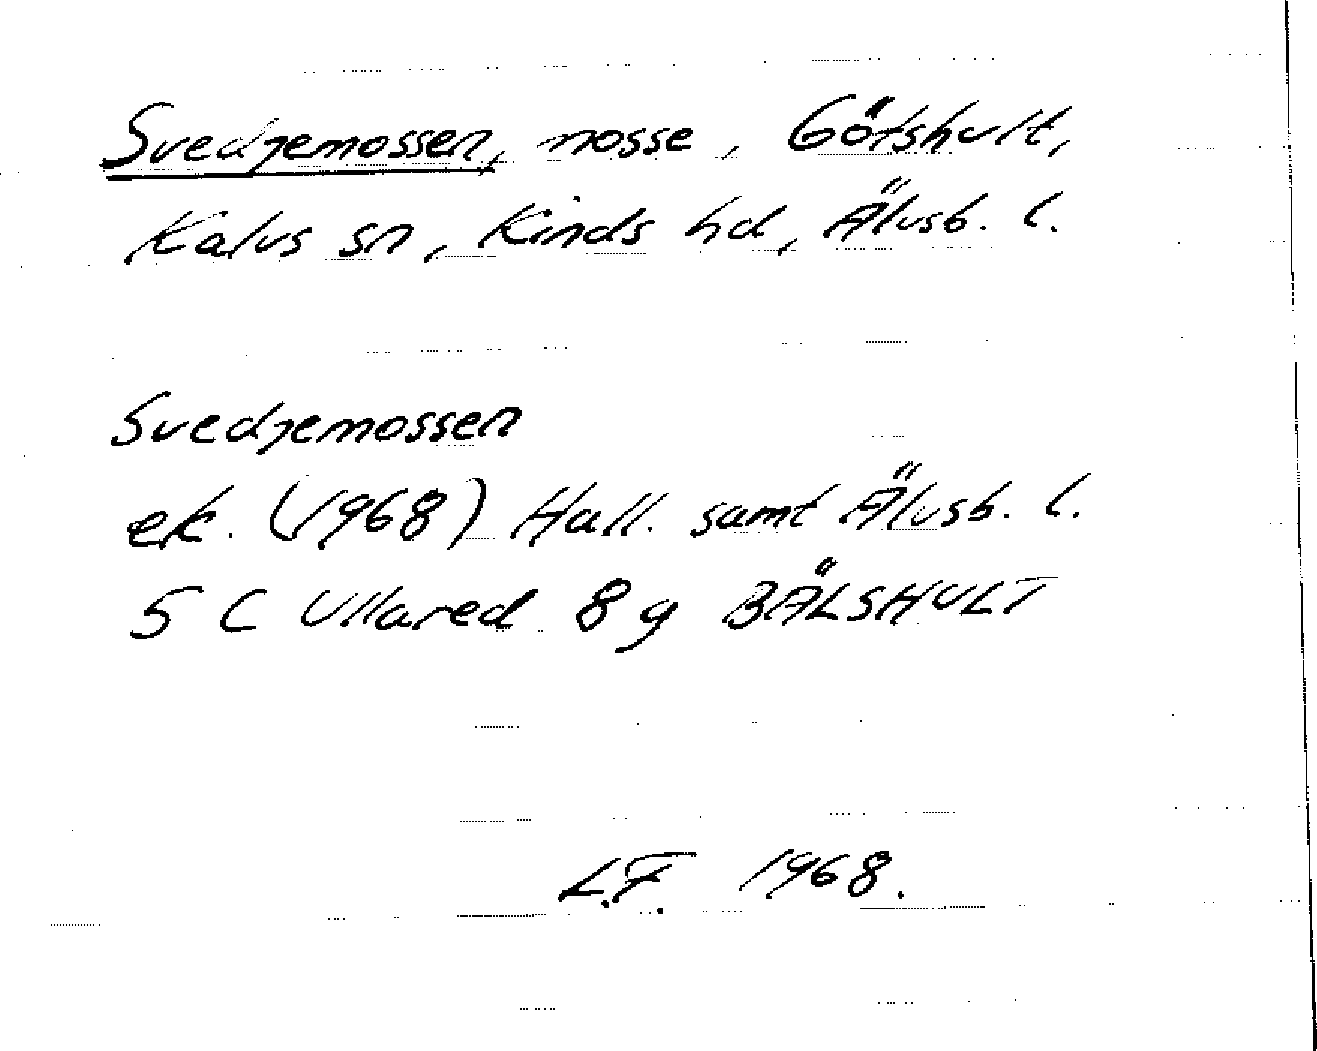 Svedjemossen, mosse, Götshult,
Kalvs sn, Kinds hd, Älvsb. l.
Svedjemossen
ek. (1968) Hall. samt Älvsb. l.
5 C Ullared 8 g BÄLSHULT
L.F. 1968.